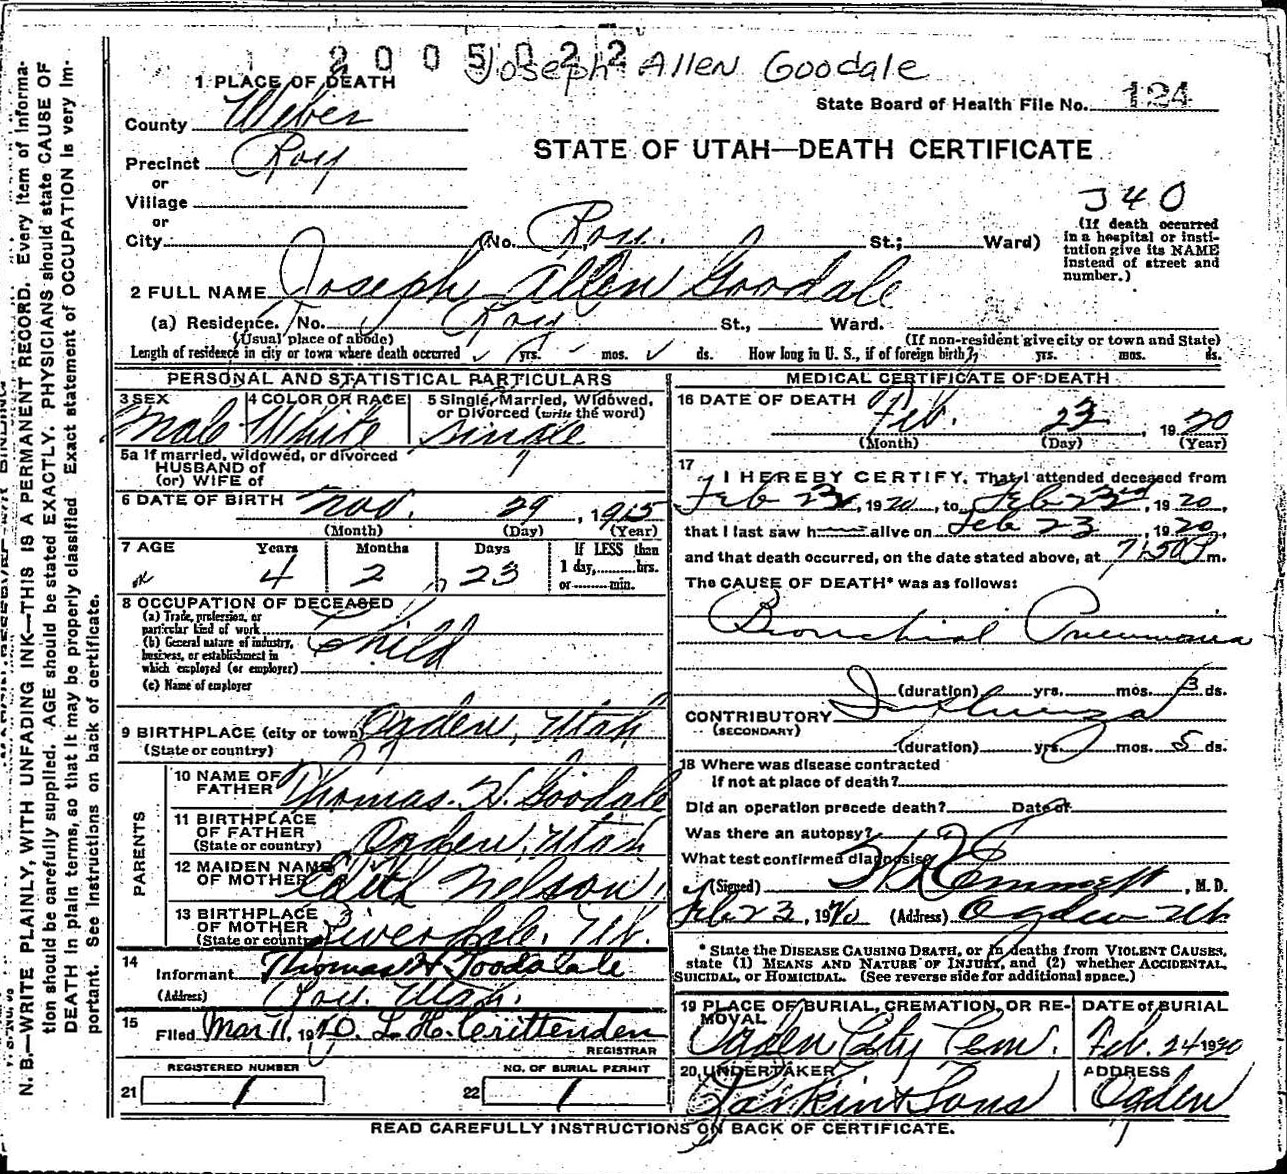 2005022
Joseph Allen Goodale
1 PLACE OF DEATH
State Board of Health File No. 124
County Weber
STATE OF UTAH—DEATH CERTIFICATE
Precinct Roy
or
Village
or
City (No. Roy. St.; Ward)
340
(If death occurred in a hospital or insti-
tution give its NAME
instead of street and
number.)
2 FULL NAME Joseph Allen Goodale
(a) Residence. No. Roy St., Ward.
(Usual place of abode) (If non-resident give city or town and State)
Length of residence in city or town where death occurred yrs. mos. ds. How long in U. S., if of foreign birth? yrs. mos. ds.
PERSONAL AND STATISTICAL PARTICULARS
3 SEX 4 COLOR OR RACE 5 Single, Married, Widowed,
or Divorced (write the word)
Male White Single
5a If married, widowed, or divorced
HUSBAND of
(or) WIFE of
6 DATE OF BIRTH Nov. 29, 1915
(Month) (Day) (Year)
7 AGE Years Months Days If LESS than
1 day, hrs.
or min.
4 2 23
8 OCCUPATION OF DECEASED
(a) Trade, profession, or
particular kind of work Child
(b) General nature of industry,
business, or establishment in
which employed (or employer)
(c) Name of employer
9 BIRTHPLACE (city or town) Ogden, Utah
(State or country)
PARENTS
10 NAME OF
FATHER Thomas. H. Goodale
11 BIRTHPLACE
OF FATHER
(State or country) Ogden, Utah
12 MAIDEN NAME
OF MOTHER Edith Nelson
13 BIRTHPLACE
OF MOTHER
(State or country) Riverdale, Ut.
14
Informant Thomas H Goodale
(Address) Roy. Utah.
15
Filed Mar 11, 1920. L. H. Crittenden
REGISTRAR
REGISTERED NUMBER NO. OF BURIAL PERMIT
21 1 22 1
MEDICAL CERTIFICATE OF DEATH
16 DATE OF DEATH Feb. 23, 1920
(Month) (Day) (Year)
17
I HEREBY CERTIFY, That I attended deceased from
Feb 23, 1920, to Feb 23rd, 1920,
that I last saw h alive on Feb 23, 1920,
and that death occurred, on the date stated above, at 7:50 P m.
The CAUSE OF DEATH* was as follows:
Bronchial Pneumonia
(duration) yrs. mos. 3 ds.
CONTRIBUTORY Influenza
(SECONDARY)
(duration) yrs. mos. 5 ds.
18 Where was disease contracted
if not at place of death?
Did an operation precede death? Date of
Was there an autopsy?
What test confirmed diagnosis?
(Signed) Emmett, M. D.
Feb 23, 1920 (Address) Ogden Ut
* State the DISEASE CAUSING DEATH, or in deaths from VIOLENT CAUSES,
state (1) MEANS AND NATURE OF INJURY, and (2) whether ACCIDENTAL,
SUICIDAL, OR HOMICIDAL. (See reverse side for additional space.)
19 PLACE OF BURIAL, CREMATION, OR RE-
MOVAL
Ogden City Cem.
DATE of BURIAL
Feb. 24 1920
20 UNDERTAKER
Larkin & Sons
ADDRESS
Ogden
READ CAREFULLY INSTRUCTIONS ON BACK OF CERTIFICATE.
N. B.—WRITE PLAINLY, WITH UNFADING INK—THIS IS A PERMANENT RECORD. Every item of informa-
tion should be carefully supplied. AGE should be stated EXACTLY. PHYSICIANS should state CAUSE OF
DEATH in plain terms, so that it may be properly classified. Exact statement of OCCUPATION is very im-
portant. See instructions on back of certificate.